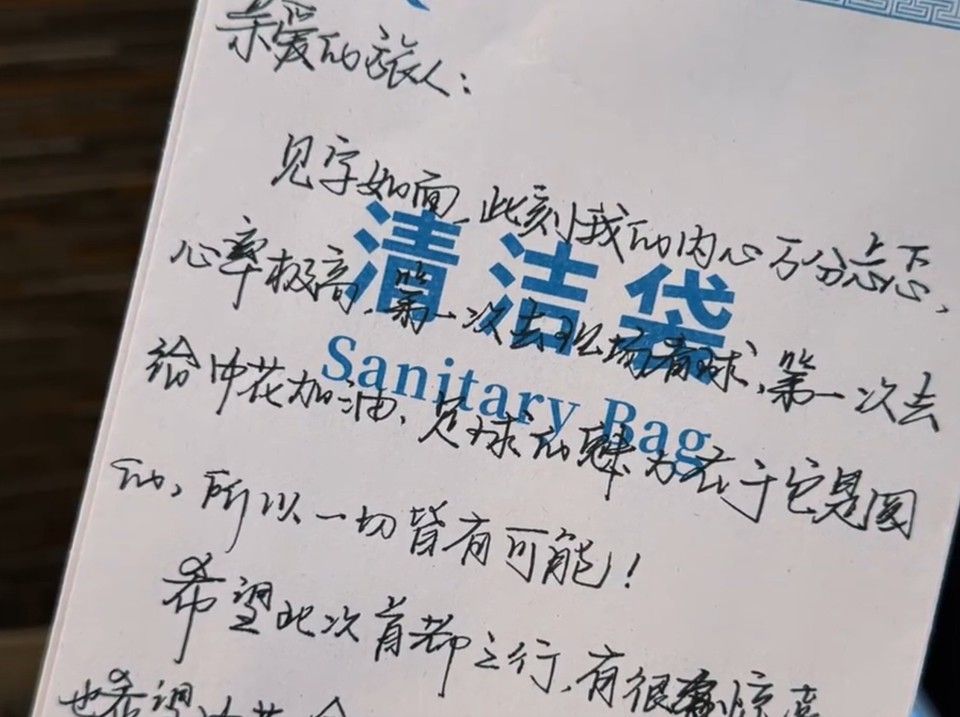 亲爱的旅人：
见字如面,此刻我的内心万分忐忑,
清洁袋
心率极高,第一次去现场看球,第一次去
Sanitary Bag
给中花加油,足球的魅力在于它是圆
的,所以一切皆有可能!
希望此次首都之行,有很多惊喜
也希望